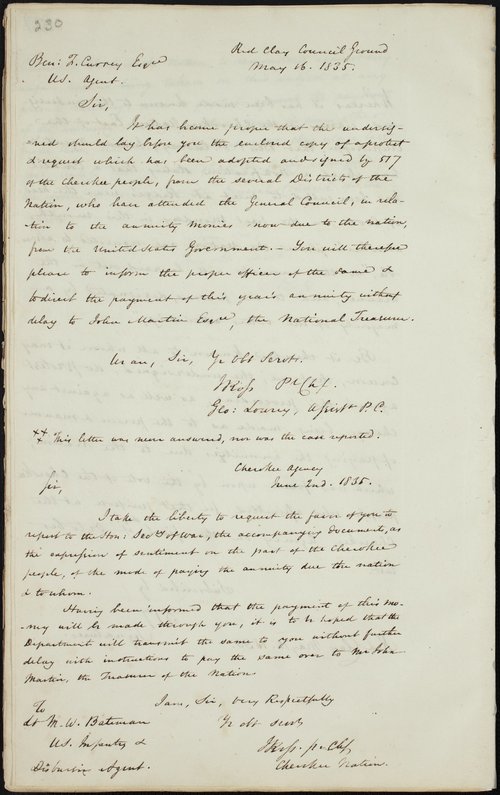 230
Red Clay Council Ground
May 16. 1835.
Ben: F. Currey Esqre
US. Agent.
Sir,
It has become proper that the undersig-
ned should lay before you the enclosed copy of a protest
& request which has been adopted and signed by 517
of the Cherokee people, from the several Districts of the
Nation, who have attended the General Council, in rela-
tion to the annuity monies now due to the nation,
from the United States Government.— You will therefore
please to inform the proper officer of the same &
to direct the payment of this year's annuity without
delay to John Martin Esqre, the National Treasurer.
We are, Sir, Yr Obt Servts.
JRoss Pl Chf.
Geo: Lowrey, Assist P.C.
This letter was never answered, nor was the case reported.
Cherokee Agency
June 2nd. 1835.
Sir,
I take the liberty to request the favor of you to
report to the Hon: Secy of War, the accompanying documents, as
the expression of sentiment on the part of the Cherokee
people, of the mode of paying the annuity due the nation
& to whom.
Having been informed that the payment of this mo-
ney will be made through you, it is to be hoped that the
Department will transmit the same to you without further
delay with instructions to pay the same over to Mr John
Martin, the Treasurer of the Nation.
I am, Sir, very Respectfully
Yr obt servt
JRoss. pr Chf,
Cherokee Nation.
To
Lt M. W. Bateman
US. Infantry &
Disbursin Agent.